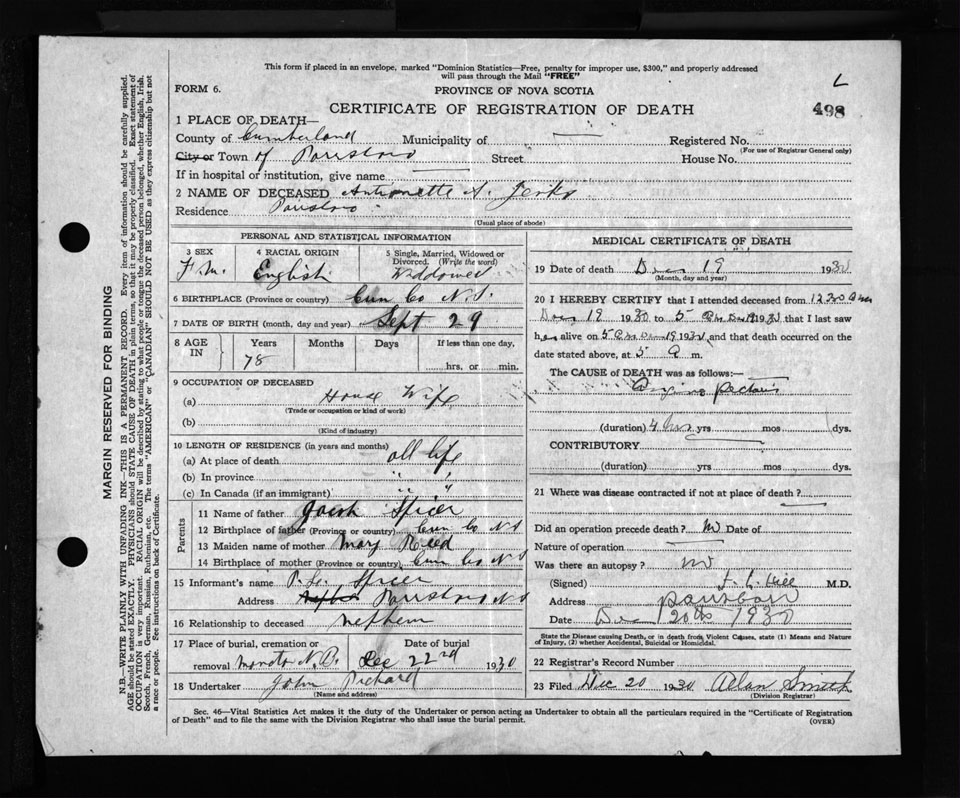 This form if placed in an envelope, marked "Dominion Statistics—Free, penalty for improper use, $300," and properly addressed
will pass through the Mail "FREE"
FORM 6.
PROVINCE OF NOVA SCOTIA
L
CERTIFICATE OF REGISTRATION OF DEATH
498
1 PLACE OF DEATH—
County of Cumberland Municipality of — Registered No.
(For use of Registrar General only)
City or Town of Parrsboro Street House No.
If in hospital or institution, give name
2 NAME OF DECEASED A. Jenks
Residence Parrsboro
(Usual place of abode)
PERSONAL AND STATISTICAL INFORMATION
3 SEX 4 RACIAL ORIGIN 5 Single, Married, Widowed or Divorced. (Write the word)
F m. English Widdowed
6 BIRTHPLACE (Province or country) Cum Co N.S.
7 DATE OF BIRTH (month, day and year) Sept 29
8 AGE IN Years Months Days If less than one day,
78 hrs. or min.
9 OCCUPATION OF DECEASED
(a) House Wife
(Trade or occupation or kind of work)
(b)
(Kind of industry)
10 LENGTH OF RESIDENCE (in years and months)
(a) At place of death all life
(b) In province " "
(c) In Canada (if an immigrant) " "
Parents
11 Name of father Jacob Spicer
12 Birthplace of father (Province or country) Cum Co N S
13 Maiden name of mother Mary Reed
14 Birthplace of mother (Province or country) Cum Co N S
15 Informant's name Spicer
Address Parrsboro N S
16 Relationship to deceased Nephew
17 Place of burial, cremation or removal Moncton N.B. Date of burial Dec 22nd 1930
18 Undertaker John Pickard
(Name and address)
MEDICAL CERTIFICATE OF DEATH
19 Date of death Dec 19 1930
(Month, day and year)
20 I HEREBY CERTIFY that I attended deceased from 12 30 a m
Dec 19 1930 to 5 a m Dec 19 1930 that I last saw
her alive on 5 a m Dec 19 1930 and that death occurred on
date stated above, at 5 a m.
The CAUSE of DEATH was as follows:—
Angina pectoris
(duration) 4 hrs yrs mos dys.
CONTRIBUTORY
(duration) yrs. mos. dys.
21 Where was disease contracted if not at place of death?
Did an operation precede death? no Date of
Nature of operation
Was there an autopsy? no
(Signed) Hill M.D.
Address Parrsboro
Date Dec 20th 1930
State the Disease causing Death, or in death from Violent Causes, state (1) Means and Nature
of Injury, (2) whether Accidental, Suicidal or Homicidal.
22 Registrar's Record Number
23 Filed Dec 20 1930 Allan Smith
(Division Registrar)
Sec. 46—Vital Statistics Act makes it the duty of the Undertaker or person acting as Undertaker to obtain all the particulars required in the "Certificate of Registration
of Death" and to file the same with the Division Registrar who shall issue the burial permit. (OVER)
MARGIN RESERVED FOR BINDING
N.B.—WRITE PLAINLY WITH UNFADING INK—THIS IS A PERMANENT RECORD. Every item of information should be carefully supplied.
AGE should be stated EXACTLY. PHYSICIANS should STATE CAUSE OF DEATH in plain terms, so that it may be properly classified. Exact statement of
OCCUPATION is very important. RACIAL ORIGIN will be described by stating to what people or tongue the deceased person belonged, whether English, Irish,
Scotch, French, German, Russian, Ruthenian, etc. The terms "AMERICAN" or "CANADIAN" SHOULD NOT BE USED as they express citizenship but not
a race or people. See instructions on back of Certificate.